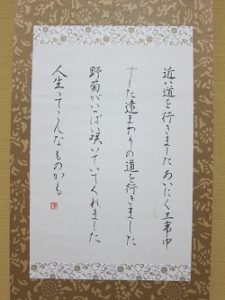 近い道を行きました あいにく工事中
でした 遠まわりの道を行きました
野菊がいっぱい咲いていてくれました
人生ってこんなものかも